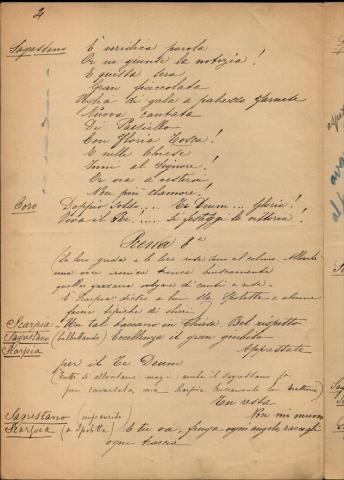 2
Sagrestano È veridica parola
Or ne giunse la notizia!
E questa sera
Gran fiaccolata
Veglia di gala a palazzo Farnese
Nuova cantata
Di Paisiello
Con Floria Tosca!
E nelle chiese
Inni al Signore!
Or via a vestirvi
Non più clamore!
Coro Doppio soldo.... Te Deum ... Gloria!
Viva il Re! ... Si festeggi la vittoria!
Scena 8a
(Le loro grida e le loro risa sono al colmo. Allorché
una voce ironica tronca bruscamente
quella gazzarra volgare di canti e risa.
È Scarpia dietro a lui Spoletta e alcuni
Scarpia Un tal baccano in chiesa. Bel rispetto
Sagrestano (balbettando) Eccellenza il gran giubilo
Scarpia Apprestate
per il Te Deum
(tutti si allontanano anche il Sagrestano fa
per cavarsela, ma Scarpia bruscamente lo trattiene)
Tu resta
Sagrestano (impaurito) Non mi muovo
Scarpia (a Spoletta) E tu va, fruga ogni angolo, raccogli
ogni traccia